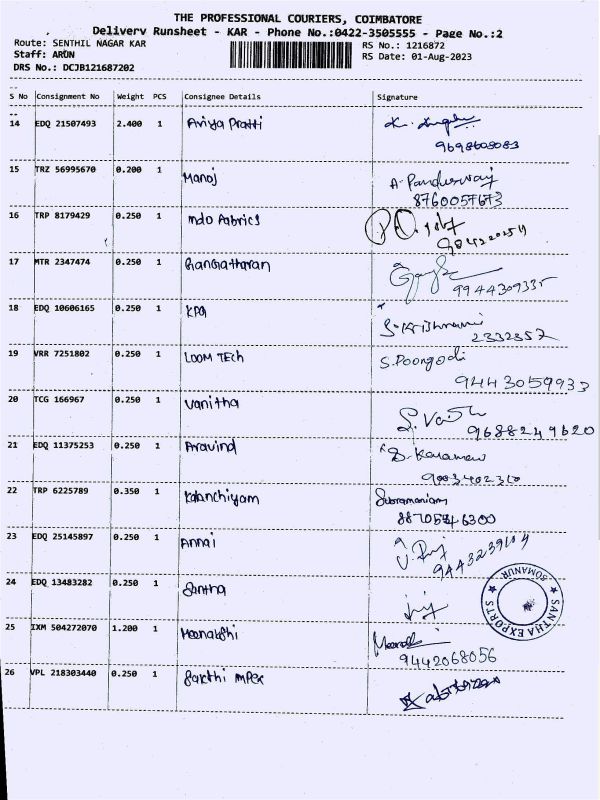 THE PROFESSIONAL COURIERS, COIMBATORE
Delivery Runsheet - KAR - Phone No.:0422-3505555 - Page No.:2
Route: SENTHIL NAGAR KAR
RS No.: 1216872
Staff: ARUN
RS Date: 01-Aug-2023
DRS No.: DCJB121687202
S No Consignment No Weight PCS Consignee Details Signature
14 EDQ 21507493 2.400 1
9698608083
15 TRZ 56995670 0.200 1 Manoj
8760057673
16 TRP 8179429 0.250 1 Indo Fabrics
17 MTR 2347474 0.250 1 Gangatharan
9944309335
18 EDQ 10606165 0.250 1 KPG
2332357
19 VRR 7251802 0.250 1 LOOM TECH S.Poongodi
9443059933
20 TCG 166967 0.250 1 Vanitha
9688249620
21 EDQ 11375253 0.250 1 Aravind
9003402310
22 TRP 6225789 0.350 1 Kalanchiyam Subramaniam
8870546300
23 EDQ 25145897 0.250 1 Annai
9443239104
24 EDQ 13483282 0.250 1 Santha
SANTHA EXPORTS
SOMANUR
25 IXM 504272070 1.200 1 Meenakshi
9442068056
26 VPL 218303440 0.250 1 Sakthi Mpex